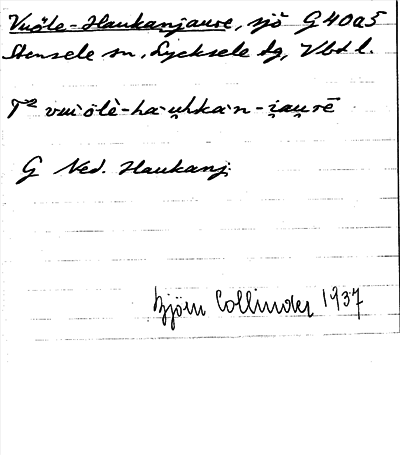 Vuöle-Haukanjaure, sjö G40a5
Stensele sn, Lycksele dg, Vbd l.
T² vuiölè-ha·u̯hka·n-i̯au̯rē
G Ned. Haukanj.
Björn Collinder 1937